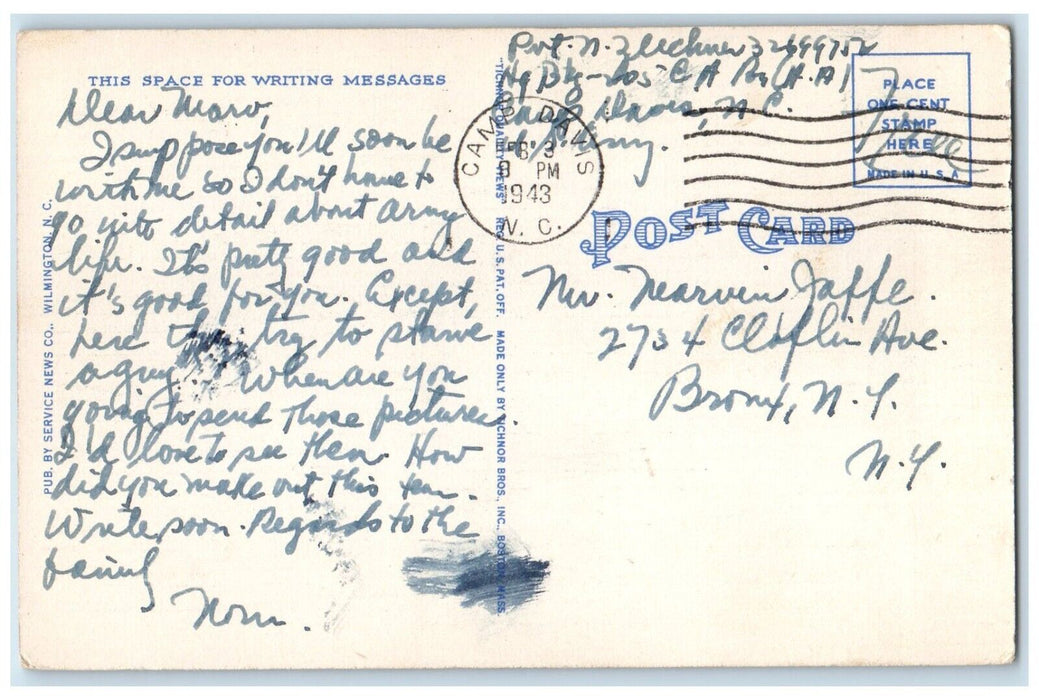 THIS SPACE FOR WRITING MESSAGES
Dear Marv,
I suppose you'll soon be
with me so I don't have to
go into detail about army
life. It's pretty good and
it's good for you. Except,
here they try to starve
a guy. When are you
going to send those pictures.
I'd love to see them. How
did you make out this term.
Write soon. Regards to the
family
Norm.
PUB. BY SERVICE NEWS CO., WILMINGTON, N. C.
"TICHNOR QUALITY VIEWS" REG. U. S. PAT. OFF. MADE ONLY BY TICHNOR BROS., INC., BOSTON, MASS.
Pvt. N. 32699752
Hq Bty - 205 C A Bn (A.A)
Camp Davis, N.C.
U.S. Army.
CAMP DAVIS
FEB 3
9 PM
1943
N. C.
PLACE
ONE CENT
STAMP
HERE
MADE IN U. S. A.
Free
POST CARD
Mr. Marvin Jaffe.
2734 Claflin Ave.
Bronx, N.Y.
N.Y.